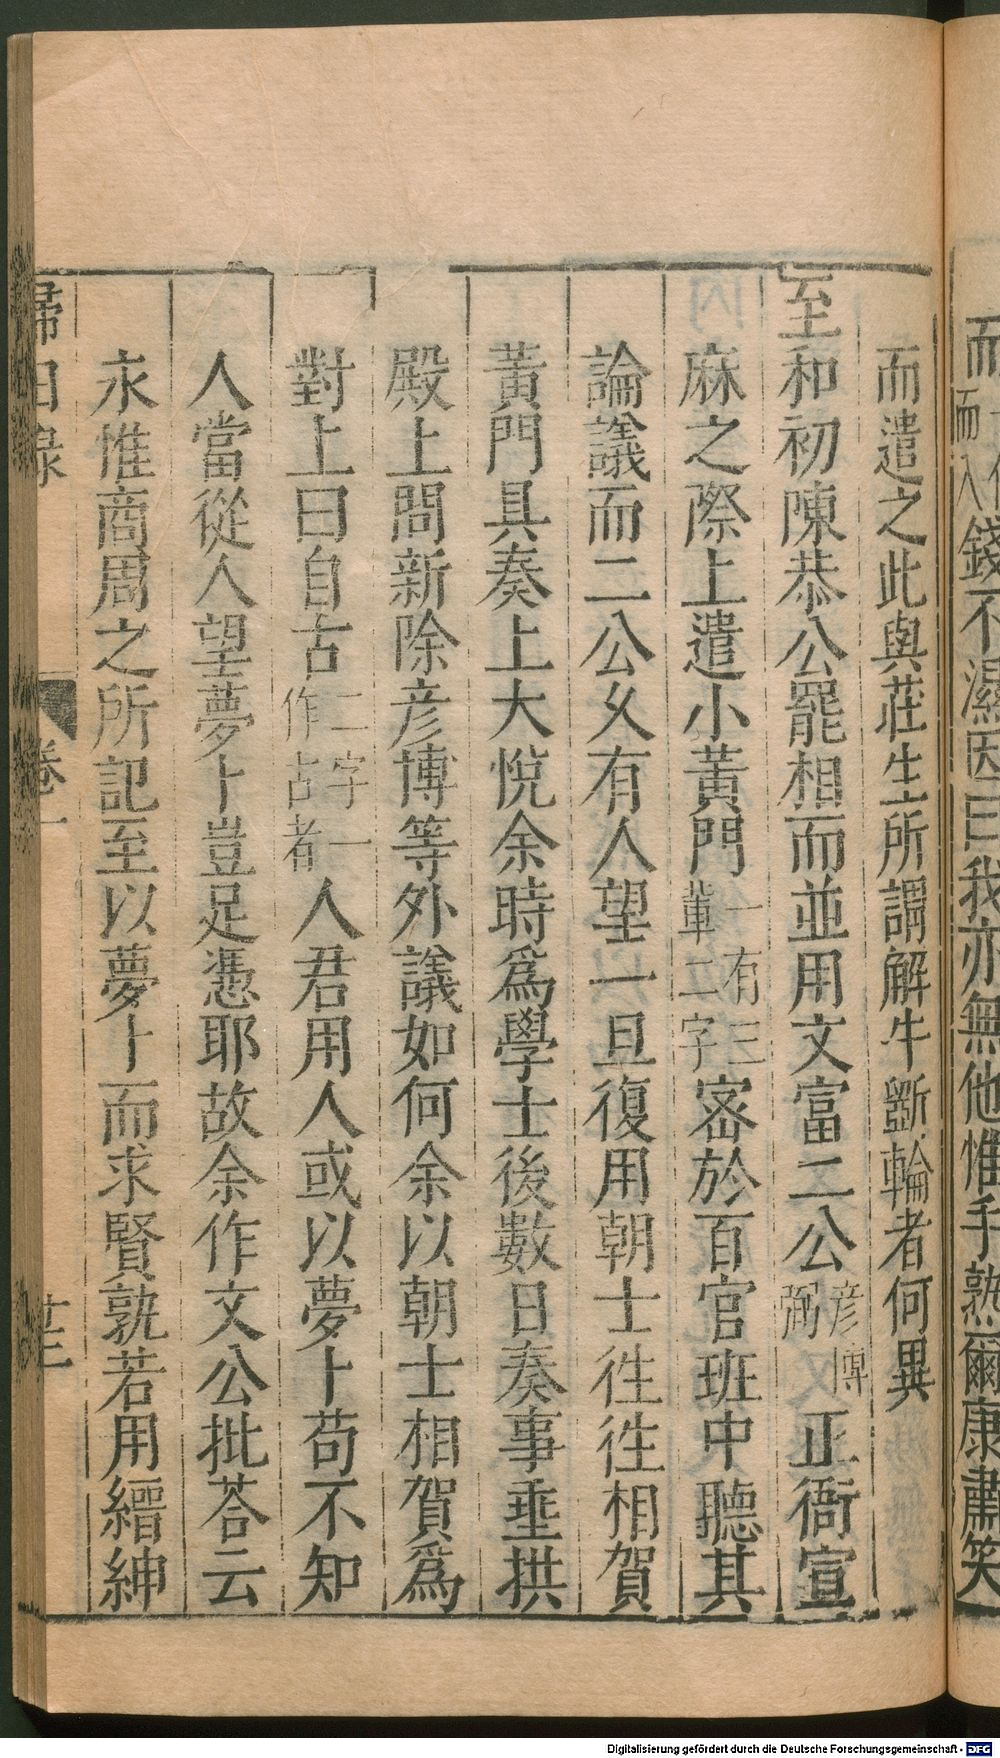 而一作而入錢不濕因曰我亦無他惟手熟爾康肅笑
而遣之此與莊生所謂解牛斵輪者何異
至和初陳恭公罷相而並用文富二公彥博弼正衙宣
麻之際上遣小黃門一有三輩二字密於百官班中聽其
論議而二公久有人望一旦復用朝士徃徃相賀
黃門具奏上大悅余時爲學士後數日奏事垂拱
殿上問新除彥博等外議如何余以朝士相賀爲
對上曰自古二字一作占者人君用人或以夢卜苟不知
人當從人望夢卜豈足憑耶故余作文公批荅云
永惟商周之所記至以夢卜而求賢孰若用縉紳
歸田錄 卷一 十二
Digitalisierung gefördert durch die Deutsche Forschungsgemeinschaft - DFG